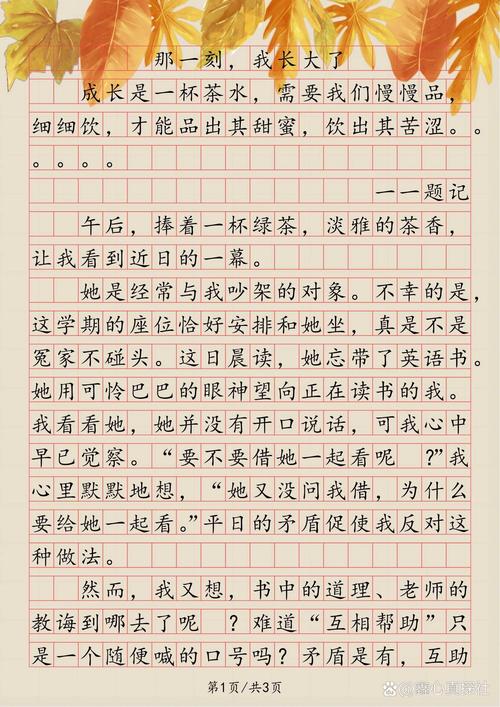 那一刻，我长大了
成长是一杯茶水，需要我们慢慢品，
细细饮，才能品出其甜蜜，饮出其苦涩。。
。。。。
一一题记
午后，捧着一杯绿茶，淡雅的茶香，
让我看到近日的一幕。
她是经常与我吵架的对象。不幸的是，
这学期的座位恰好安排和她坐，真是不是
冤家不碰头。这日晨读，她忘带了英语书。
她用可怜巴巴的眼神望向正在读书的我。
我看看她，她并没有开口说话，可我心中
早已觉察。“要不要借她一起看呢 ？”我
心里默默地想，“她又没问我借，为什么
要给她一起看。”平日的矛盾促使我反对这
种做法。
然而，我又想，书中的道理、老师的
教诲到哪去了呢 ？难道“互相帮助”只
是一个随便喊的口号吗？矛盾是有，互助
第1页/共3页